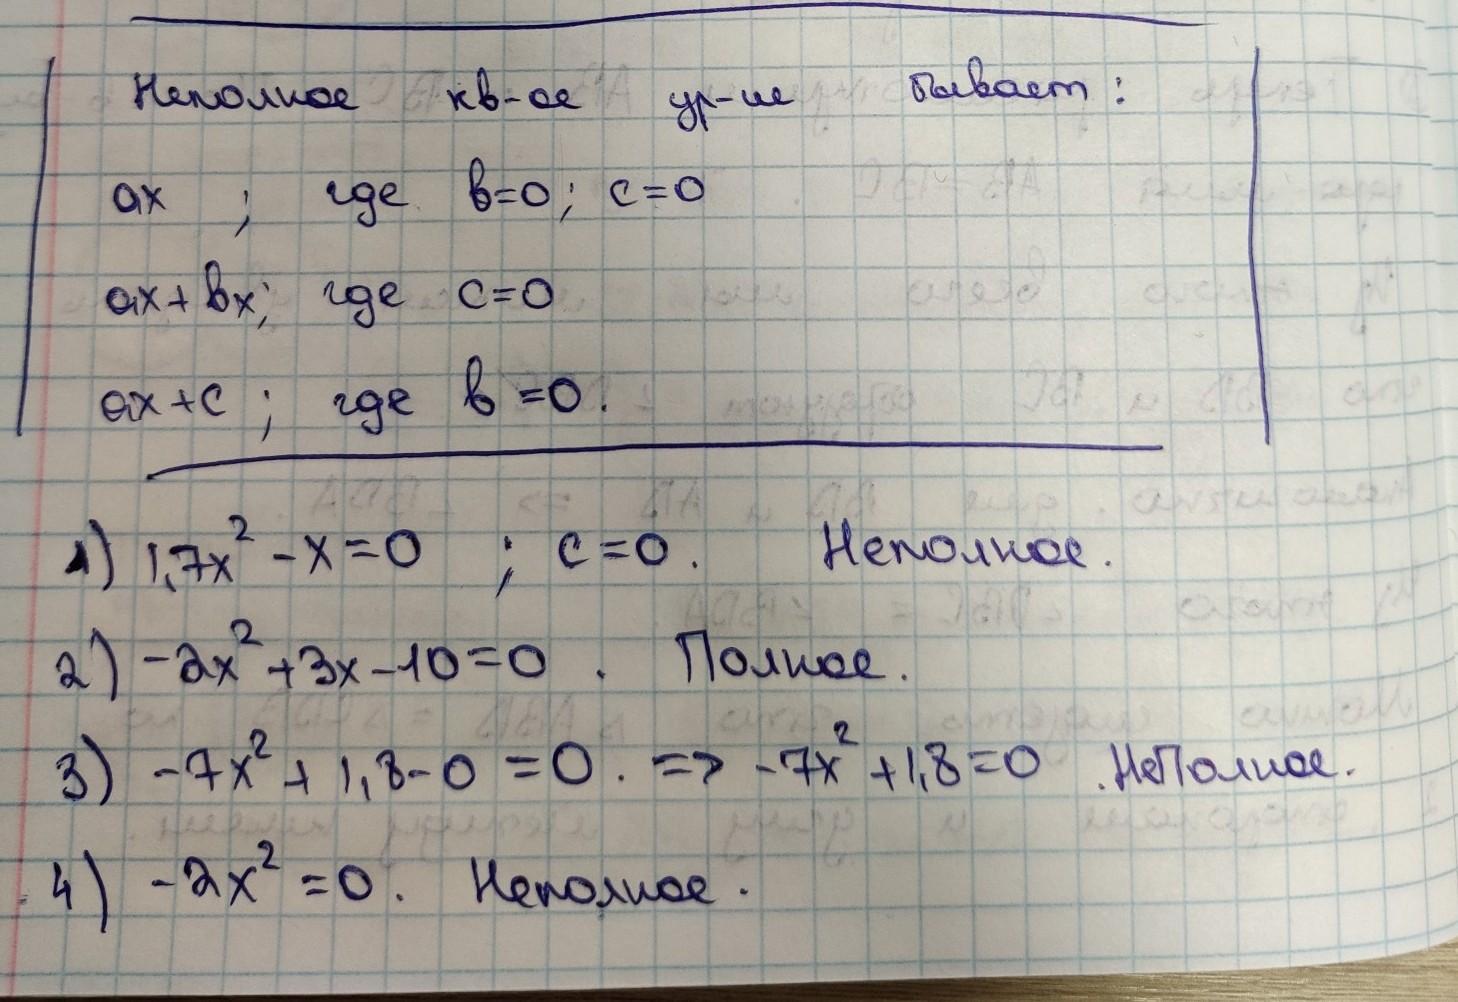 Неполное кв-ое ур-ие бывает:
ax ; где в=0; c=0
ax+вx; где c=0
ax+c ; где в=0.
1) 1,7x² -x=0 ; c=0. Неполное.
2) -2x²+3x-10=0 . Полное.
3) -7x²+1,8-0=0. => -7x²+1,8=0 .НеПолное.
4) -2x²=0. Неполное.